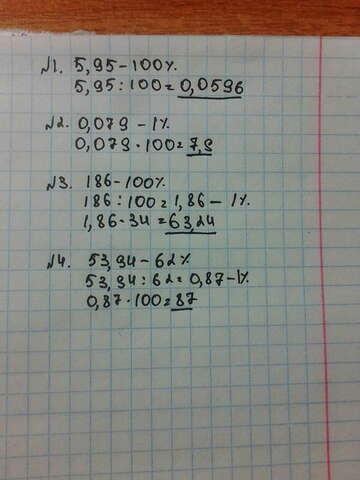 №1. 5,95-100%.
5,95:100=0,0596
№2. 0,079-1%.
0,079·100=7,9
№3. 186-100%.
186:100=1,86-1%.
1,86·34=63,24
№4. 53,94-62%
53,94:62=0,87-1%.
0,87·100=87